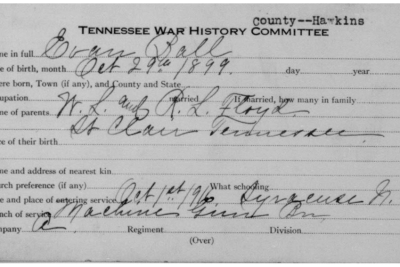 county--Hawkins
TENNESSEE WAR HISTORY COMMITTEE
me in full Evan Ball
e of birth, month Oct 29th 1899. day year
ere born, Town (if any), and County and State
cupation married If married, how many in family
me of parents W. L. and R. L. Floyd
St Clair Tennessee
me and address of nearest kin.
urch preference (if any) What schooling
e and place of entering service Oct 1st 1916. Syracuse N.
nch of service Machine Gun Bn.
mpany A Regiment Division
(Over)